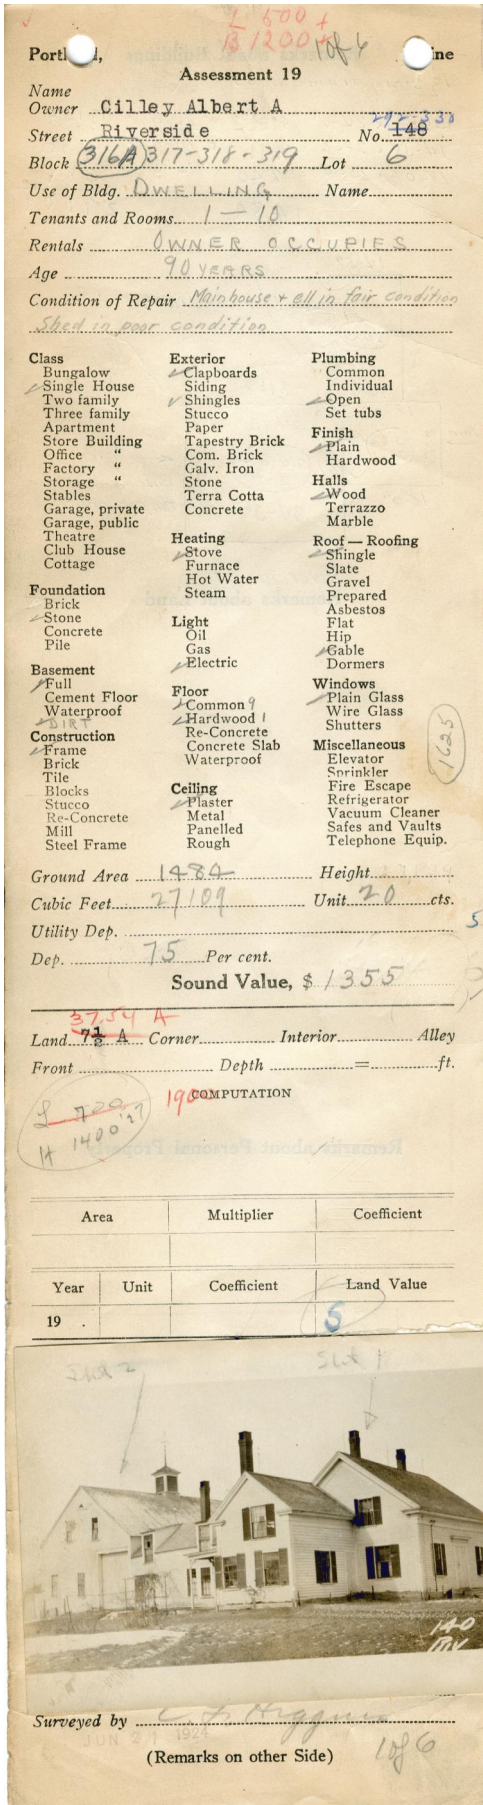 L 500 +
B 1200 +
1 of 6
Portland, Maine
Assessment 19
Name
Owner Cilley Albert A
292-330
Street Riverside No. 148
Block 316A 317-318-319 Lot 6
Use of Bldg. DWELLING Name
Tenants and Rooms 1 — 10
Rentals OWNER OCCUPIES
Age 90 YEARS
Condition of Repair Main house + ell in fair condition
Shed in poor condition
Class
Bungalow
✓ Single House
Two family
Three family
Apartment
Store Building
Office "
Factory "
Storage "
Stables
Garage, private
Garage, public
Theatre
Club House
Cottage
Foundation
Brick
✓ Stone
Concrete
Pile
Basement
✓ Full
Cement Floor
Waterproof
✓ DIRT
Construction
✓ Frame
Brick
Tile
Blocks
Stucco
Re-Concrete
Mill
Steel Frame
Exterior
✓ Clapboards
Siding
✓ Shingles
Stucco
Paper
Tapestry Brick
Com. Brick
Galv. Iron
Stone
Terra Cotta
Concrete
Heating
✓ Stove
Furnace
Hot Water
Steam
Light
Oil
Gas
✓ Electric
Floor
✓ Common 9
✓ Hardwood 1
Re-Concrete
Concrete Slab
Waterproof
Ceiling
✓ Plaster
Metal
Panelled
Rough
Plumbing
Common
Individual
✓ Open
Set tubs
Finish
✓ Plain
Hardwood
Halls
✓ Wood
Terrazzo
Marble
Roof — Roofing
✓ Shingle
Slate
Gravel
Prepared
Asbestos
Flat
Hip
✓ Gable
Dormers
Windows
✓ Plain Glass
Wire Glass
Shutters
Miscellaneous
Elevator
Sprinkler
Fire Escape
Refrigerator
Vacuum Cleaner
Safes and Vaults
Telephone Equip.
1625
Ground Area 1484 Height
Cubic Feet 27109 Unit 20 cts.
Utility Dep.
5
Dep. 75 Per cent.
Sound Value, $ 1355
37.54 A
Land 7½ A Corner Interior Alley
Front Depth = ft.
1900 COMPUTATION
L 700
H 1400 '27
Area Multiplier Coefficient
Year Unit Coefficient Land Value
19 . 5
Shot 2 Shot 1
140
Riv
Surveyed by Higgins
JUN 21 1924
1 of 6
(Remarks on other Side)